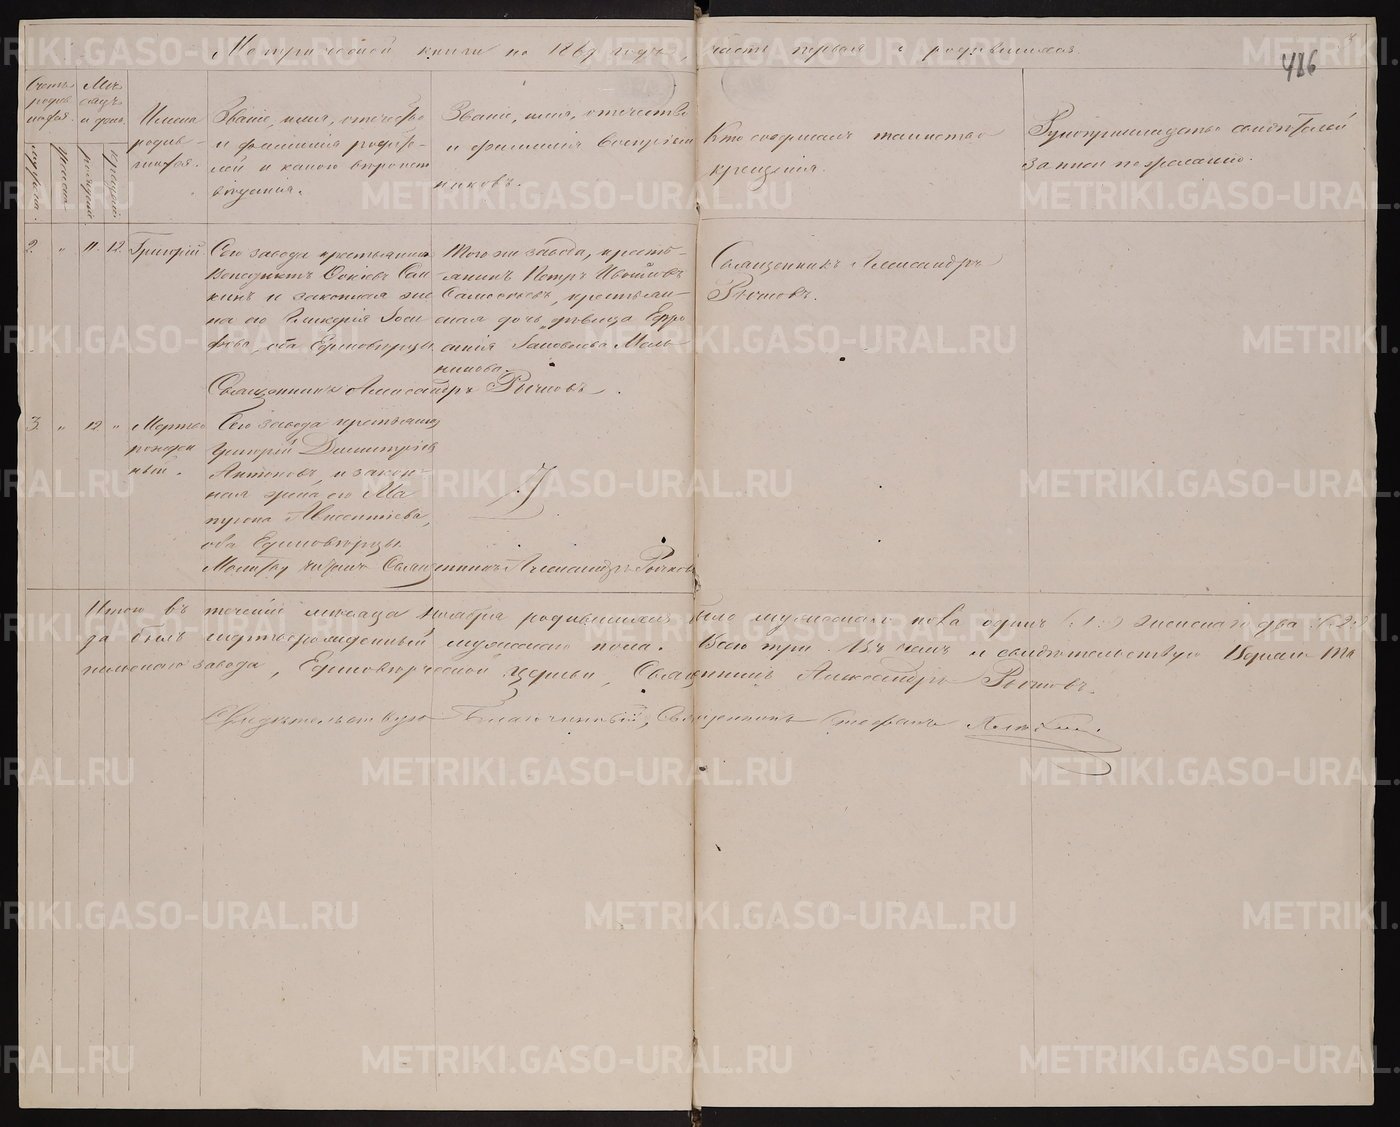 Метрической книги на 1867 годъ, часть первая о родившихся.
486
Счетъ родив-шихся.
Мѣсяцъ и день.
Имена родив-шихся.
Званіе, имя, отечество и фамилія родите-лей и какого вѣроисповѣданія.
Званіе, имя, отечество и фамилія Воспріем-никовъ.
Кто совершалъ таинство крещенія.
Рукоприкладство свидѣтелей записи по желанію.
мужеска.
женска
рожденія
крещенія.
2. " 11. 12. Григорій.
Сего завода крестьянинъ
и законная же-
на его Гликерія Іоси-
фова, оба Единовѣрцы
Того же завода, кресть-
янинъ Петръ
крестьян-
ская дочь дѣвица Евфро-
синія Іаковлева Мель-
никова.
Священникъ Александръ
Рычковъ.
Священникъ Александръ Рычковъ.
3. " 12 " Мертво
рожден
ный.
Сего завода крестьянинъ
Григорій Димитріевъ
Антоновъ, и закон-
ная жена его Ма
трона
оба Единовѣрцы.
Молитву читалъ Священникъ Александръ Рычковъ
Итого въ теченіи мѣсяца Ноября родившихся было мужескаго пола одинъ (1.) женскаго два (2.)
да былъ мертворожденный мужескаго пола. Всего три. Въ чемъ и свидѣтельствую
завода, Единовѣрческой Церкви, Священникъ Александръ Рычковъ.
Свидѣтельствую Благочинный, Священникъ Стефанъ
METRIKI.GASO-URAL.RU